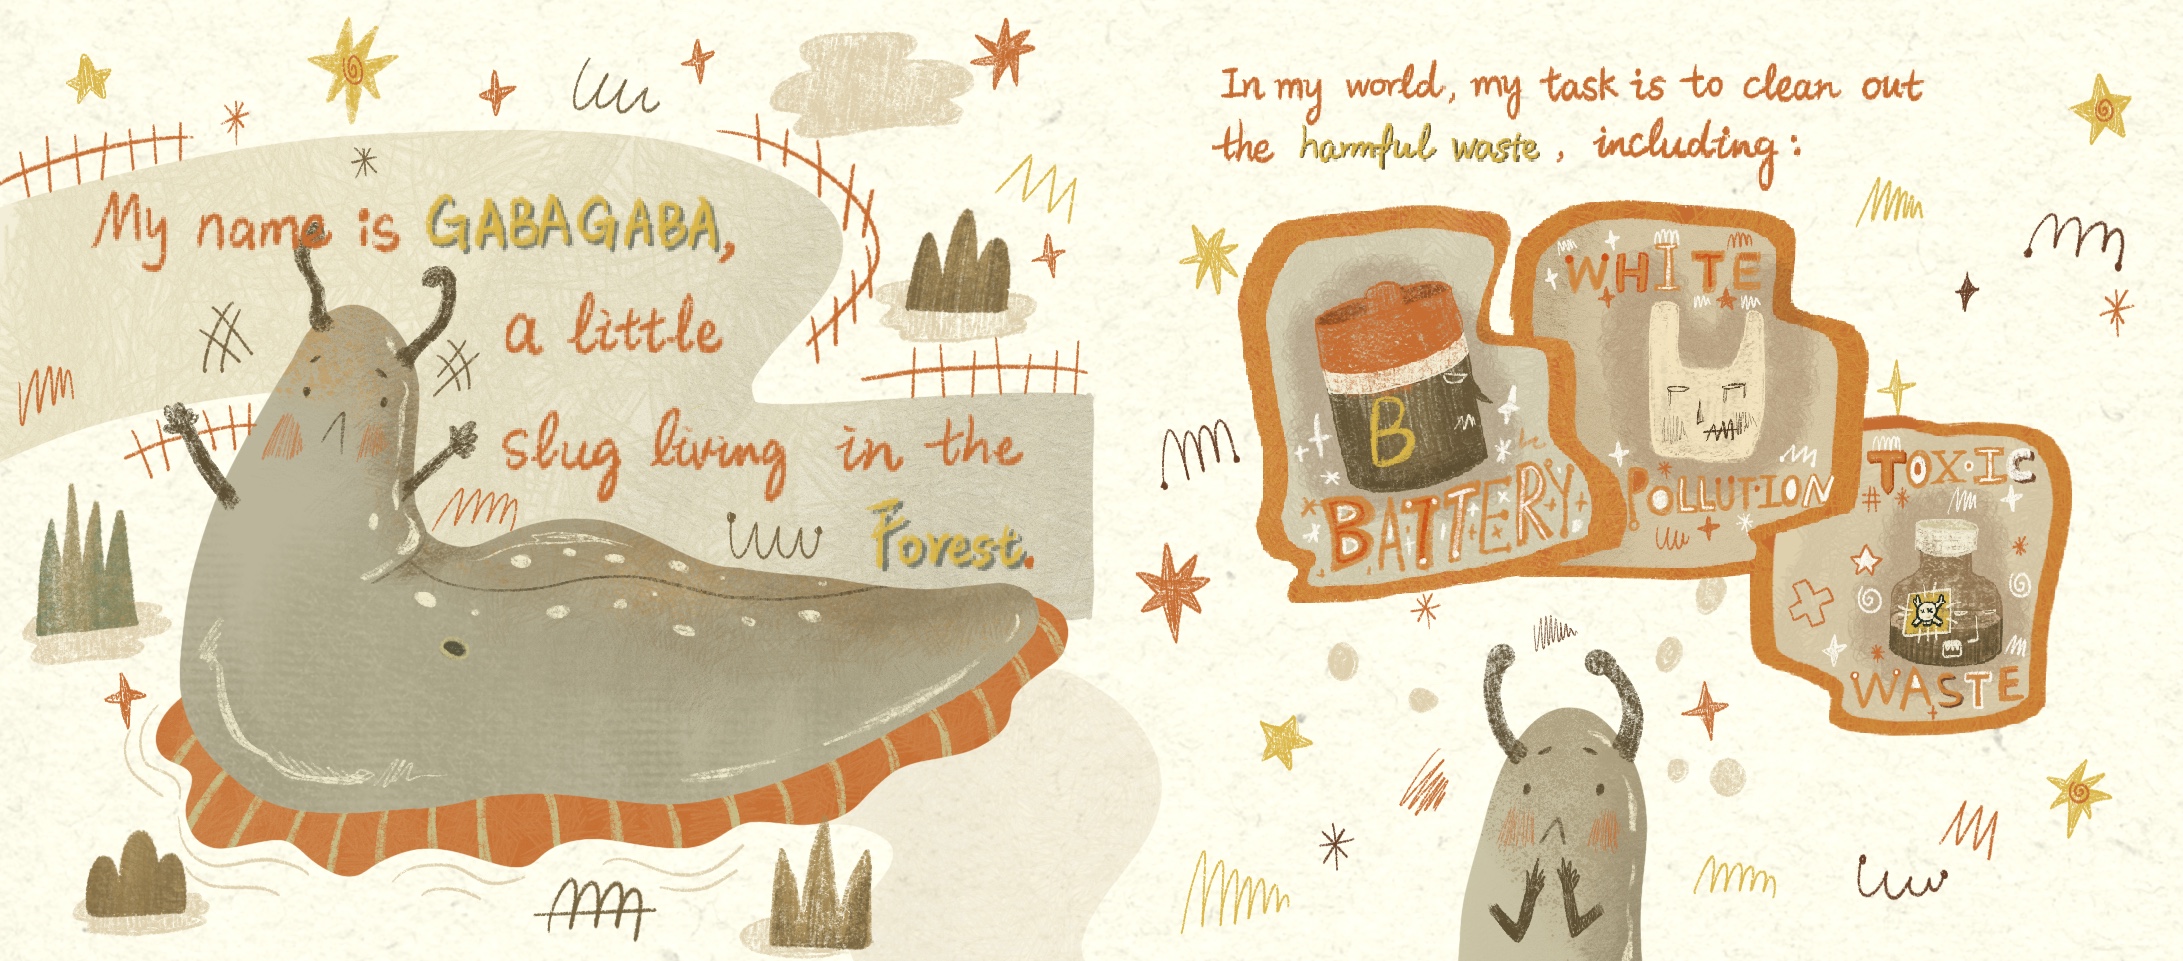 My name is GABAGABA,
a little
slug living in the
Forest.
In my world, my task is to clean out
the harmful waste, including:
B
BATTERY
WHITE
POLLUTION
TOXIC
WASTE